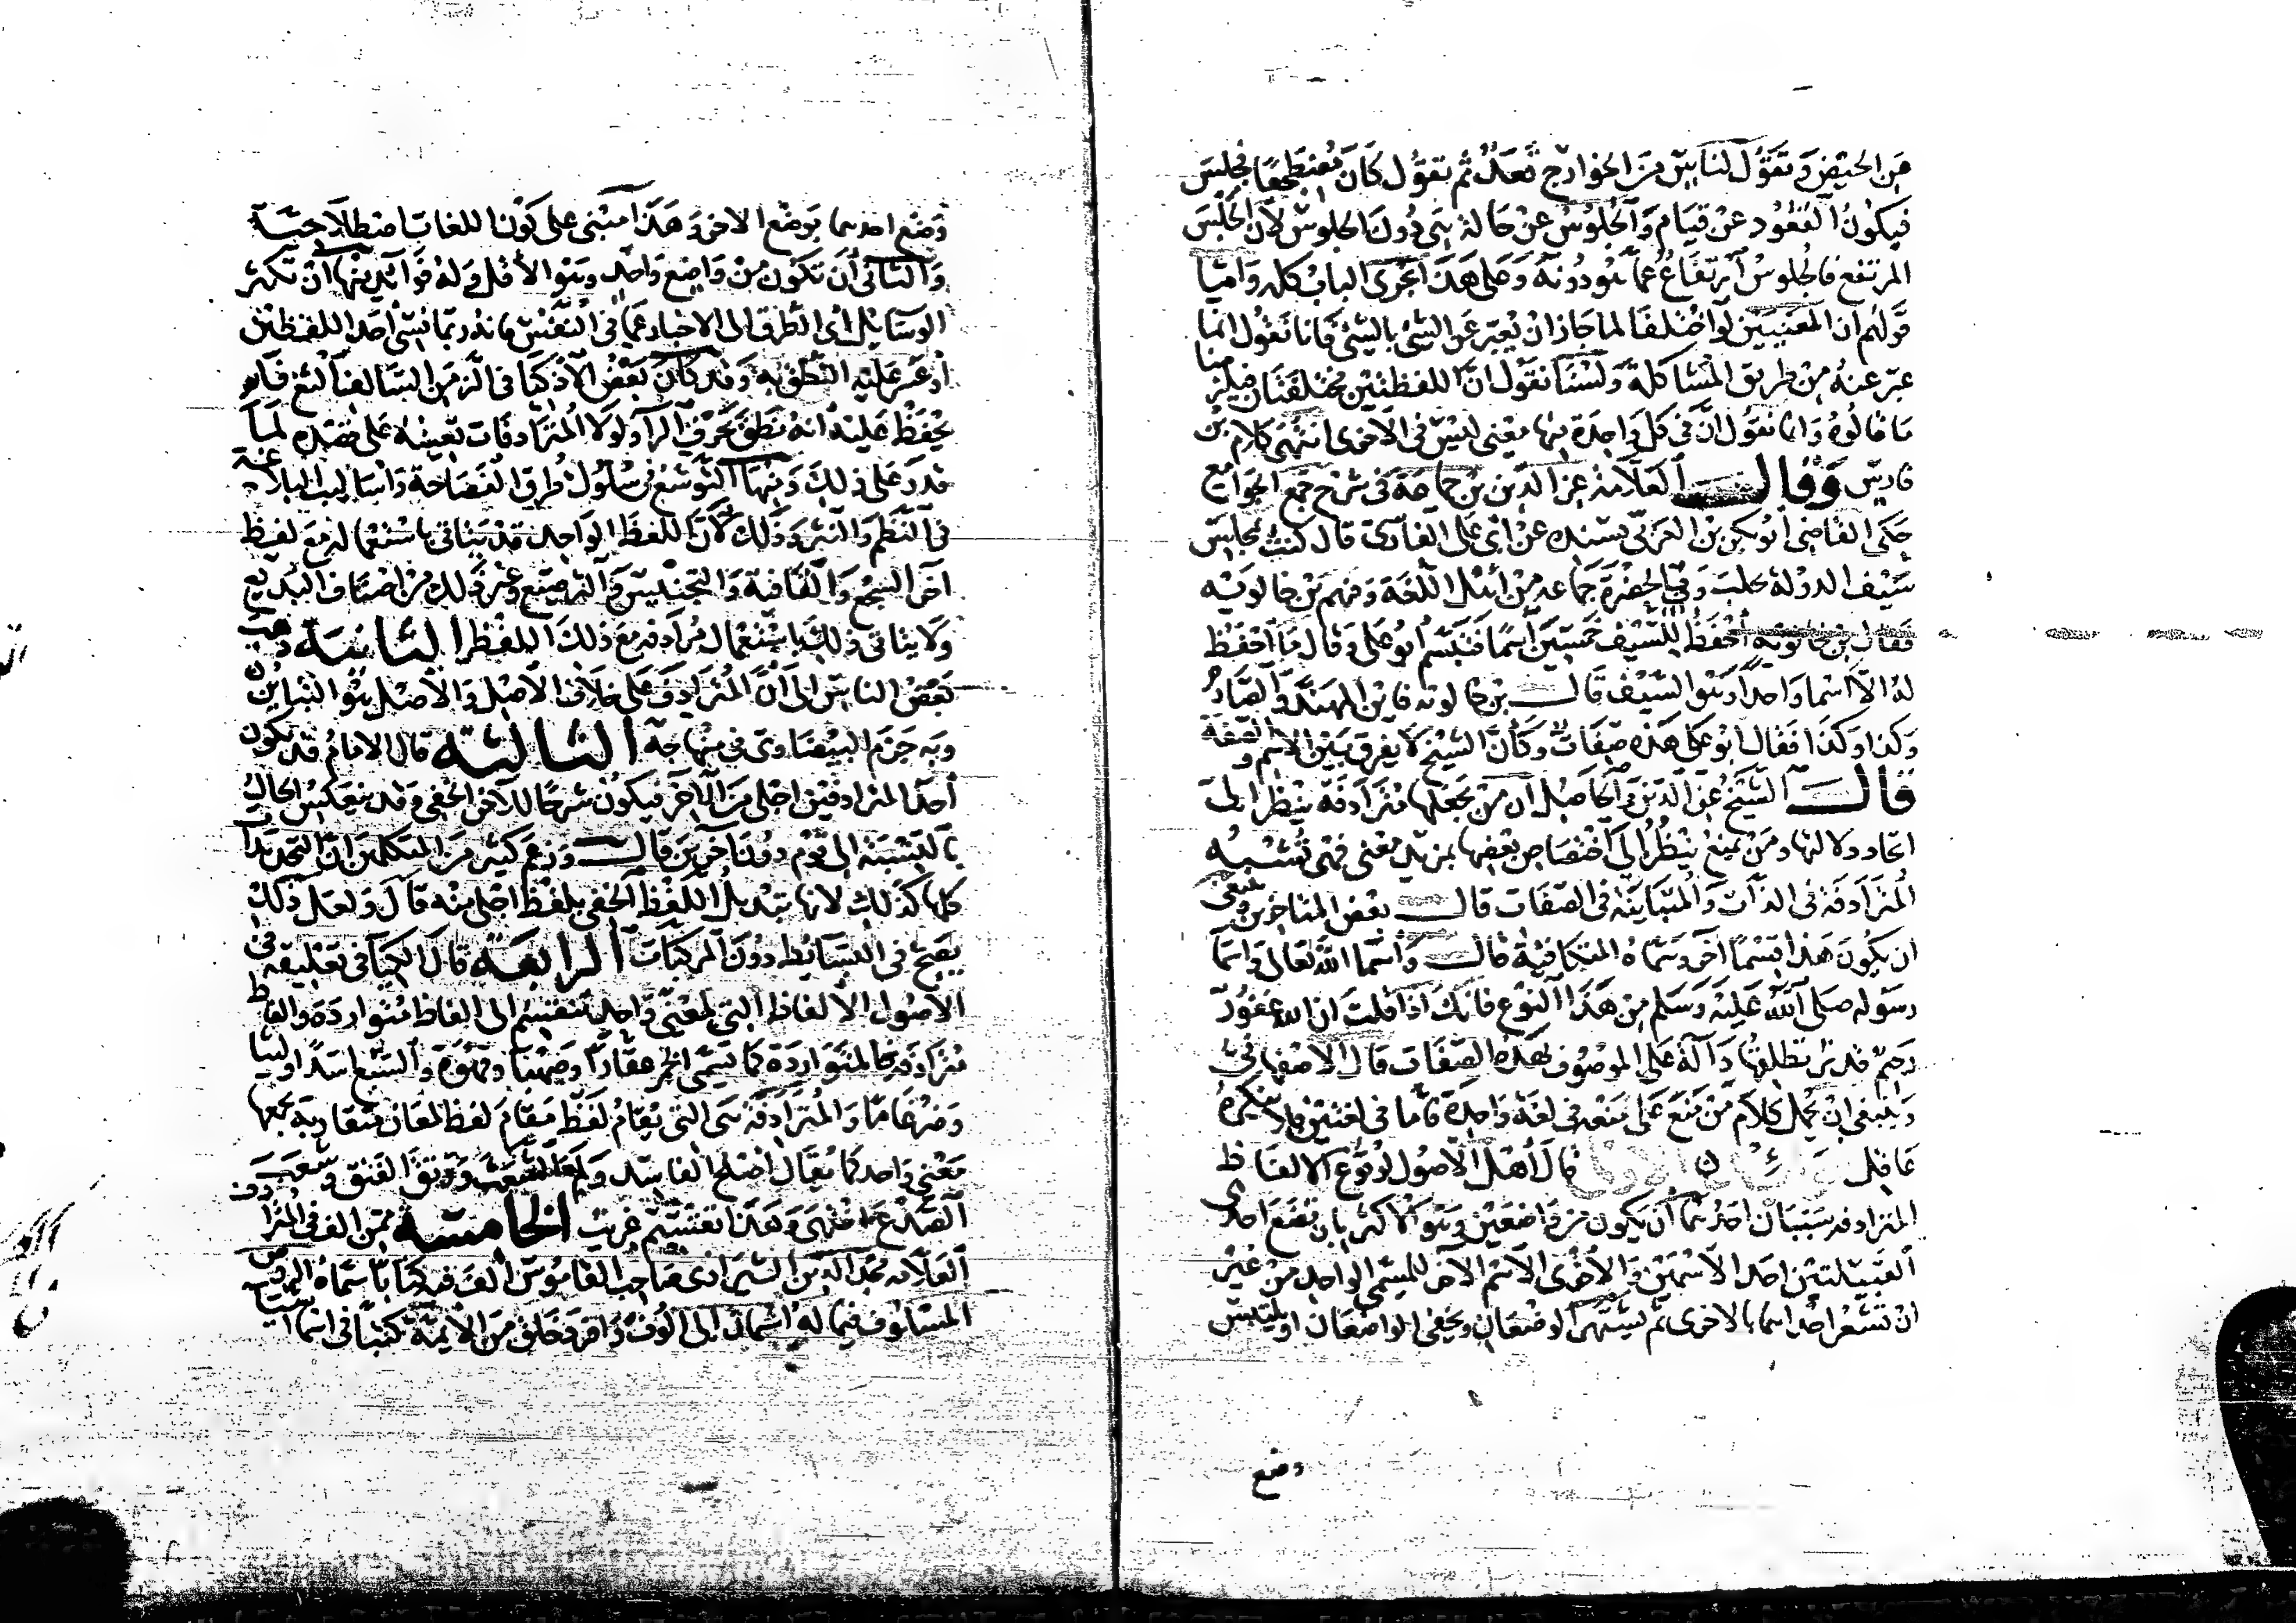 من الحيض وتقول لناس من الخوارج قعد ثم تقول كان مضطجعا فجلس
فيكون القعود عن قيام والجلوس عن حالة هي دون الجلوس لان الجلس
المرتفع فالجلوس ارتفاع عما هو دونه وعلى هذا يجرى الباب كله واما
قولهم ان المعنيين لو اختلفا لما جاز ان يعبر عن الشئ بالشئ فانا نقول انما
عبر عنه من طريق المشاكلة ولسنا نقول ان اللفظتين مختلفتان فيلزمنا
ما قالوه وانما نقول ان في كل واحدة منها معنى ليس في الاخرى انتهى كلام بن
فارس وقال العلامة عز الدين بن جماعة في شرح جمع الجوامع
حكى القاضى ابو بكر بن العربى بسنده عن ابى على الفارسى قال كنت بمجلس
سيف الدولة بحلب وفي الحضرة جماعة من اهل اللغة وفيهم بن خالويه
فقال بن خالويه احفظ للسيف خمسين اسما فتبسم ابو على وقال ما احفظ
له الا اسما واحدا وهو السيف قال بن خالويه فاين المهند والصارم
وكذا وكذا فقال ابو على هذه صفات وكأن الشيخ لا يفرق بين الاسم والصفة
قال الشيخ عز الدين والحاصل ان من جعلها مترادفة ينظر الى
اتحاد دلالتها ومن يمنع ينظر الى اختصاص بعضها بمزيد معنى فهى تشبه
المترادفة في الذات والمتباينة في الصفات قال بعض المتاخرين وينبغى
ان يكون هذا قسما آخر وسماه المتكافية قال واسما الله تعالى واسما
رسوله صلى الله عليه وسلم من هذا النوع فانك اذا قلت ان الله غفور
رحيم قدير تطلقها دالة على الموصوف بهذه الصفات قال الاصفهاني
وينبغى ان يحمل كلام من منع على منعه في لغة واحدة فاما في لغتين فلا ينكره
عاقل قال اهل الاصول لوقوع الالفاظ
المترادفة سببان احدهما ان يكون من واضعين وهو الاكثر بان تضع احدى
القبيلتين احد الاسمين والاخرى الاسم الآخر للمسمى الواحد من غير
ان تشعر احداهما بالاخرى ثم يشتهر الوضعان ويخفى الواضعان او يلتبس
وضع
وضع احدهما بوضع الاخر وهذا مبنى على كون اللغات اصطلاحية
والثانى ان تكون من واضع واحد وهو الاقل وله فوائد منها ان تكثر
الوسايل اى الطرق الى الاخبار عما في النفس فانه ربما نسى احد اللفظين
او عسر عليه النطق به وقد كان بعض الاذكيا في الزمن السالف الثغ فلم
يحفظ عليه انه نطق بحرف الرآ ولولا المترادفات تعينه على قصده لما
قدر على ذلك ومنها التوسع في سلوك طرق الفصاحة واساليب البلاغة
في النظم والنثر وذلك لان اللفظ الواحد قد يتاتى باستعماله مع لفظ
آخر السجع والقافية والتجنيس والترصيع وغير ذلك من اصناف البديع
ولا يتاتى ذلك باستعمال مرادفه مع ذلك اللفظ الثانية ذهب
بعض الناس الى ان المترادف على خلاف الاصل والاصل هو التباين
وبه جزم البيضاوى في منهاجه الثالثة قال الامام قد يكون
احد المترادفين اجلى من الآخر فيكون شرحا للآخر الخفى وقد ينعكس الحال
بالنسبة الى قوم دون آخرين قال وزعم كثير من المتكلمين ان التحديدات
كلها كذلك لانها تبديل اللفظ الخفى بلفظ اجلى منه قال ولعل ذلك
يصح في البسائط دون المركبات الرابعة قال الكيا في تعليقه في
الاصول الالفاظ التي لمعنى واحد تنقسم الى الفاظ متواردة والفاظ
مترادفة فالمتواردة كما يسمى الخمر عقارا وصهبا وقهوة والسبع اسدا وليثا
وضرغاما والمترادفة هى التى يقام لفظ مقام لفظ لمعان متقاربة يجمعها
معنى واحد كما يقال اصلح الفاسد ولم الشعث ورتق الفتق وشعب
الصدع انتهى وهذا تقسيم غريب الخامسة ممن الف في المترادف
العلامة مجد الدين الشيرازى صاحب القاموس الف فيه كتابا سماه الروض
المسلوف فيما له اسمان الى الوف وافرد خلق من الايمة كتبا في اسما اشيا